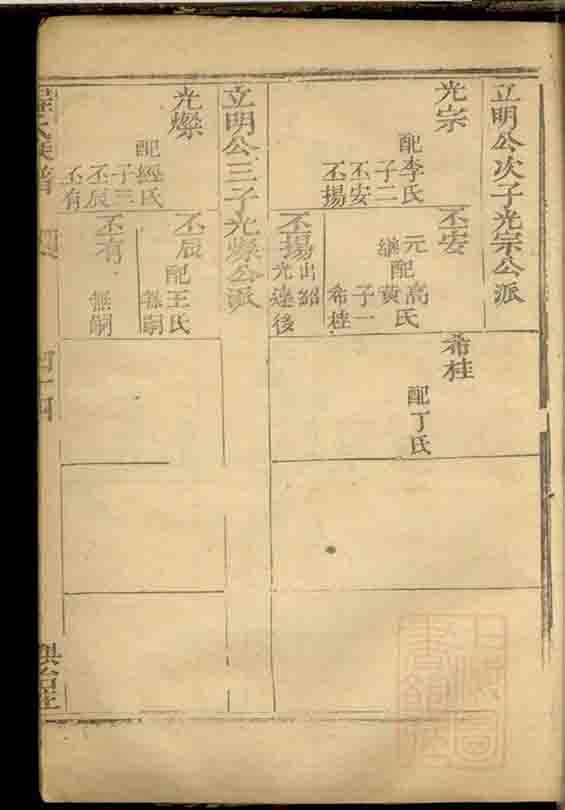 立明公次子光宗公派
光宗
配李氏
子二
丕安
丕揚
丕安
元配高氏
繼黃
子一
希桂
丕揚
出紹
光遠後
希桂
配丁氏
立明公三子光燦公派
光燦
配經氏
子三
丕辰
丕有
丕辰
配王氏
無嗣
丕有
無嗣
氏族譜
四十四